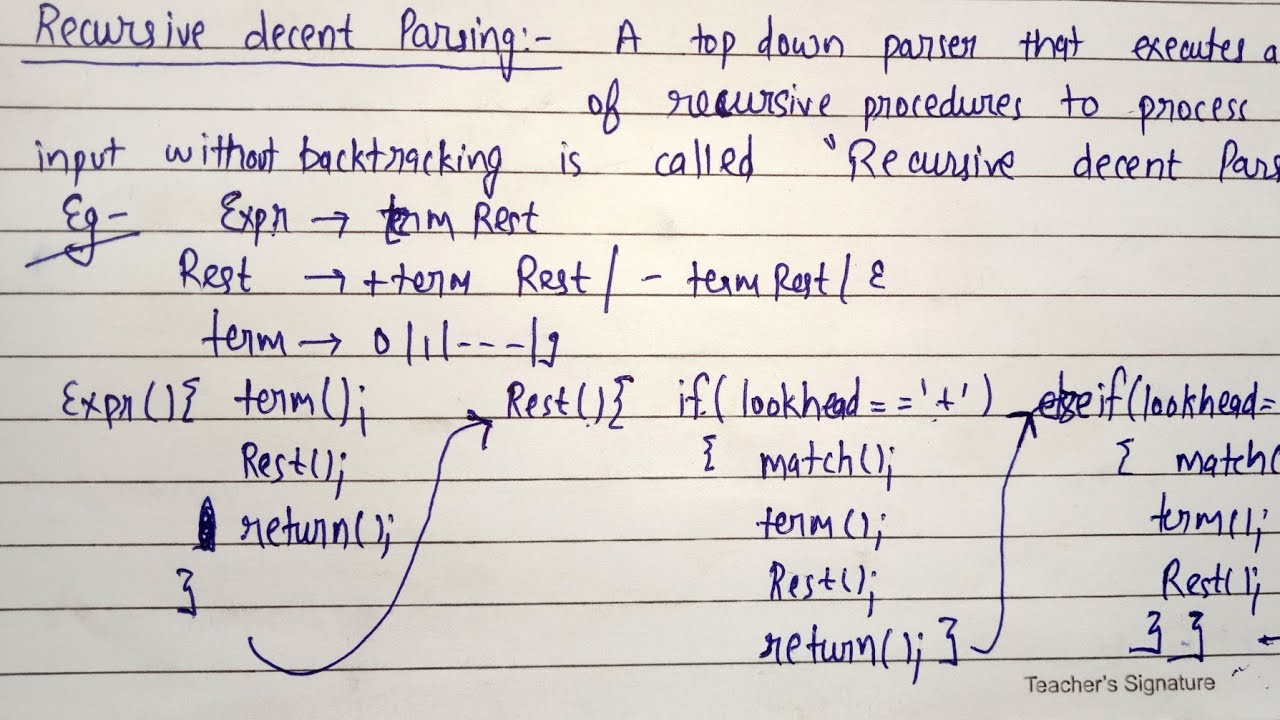 Recursive decent Parsing:- A top down parser that executes a
of recursive procedures to process
input without backtracking is called "Recursive decent Pars
Eg- Expr → term Rest
Rest → +term Rest / - term Rest / ε
term → 0 |1|---|9
Expr(){ term(); Rest(){ if( lookhead=='+') else if(lookhead=
Rest(); { match(); { match(
return(); term(); term();
} Rest(); Rest();
return(); } } }
Teacher's Signature